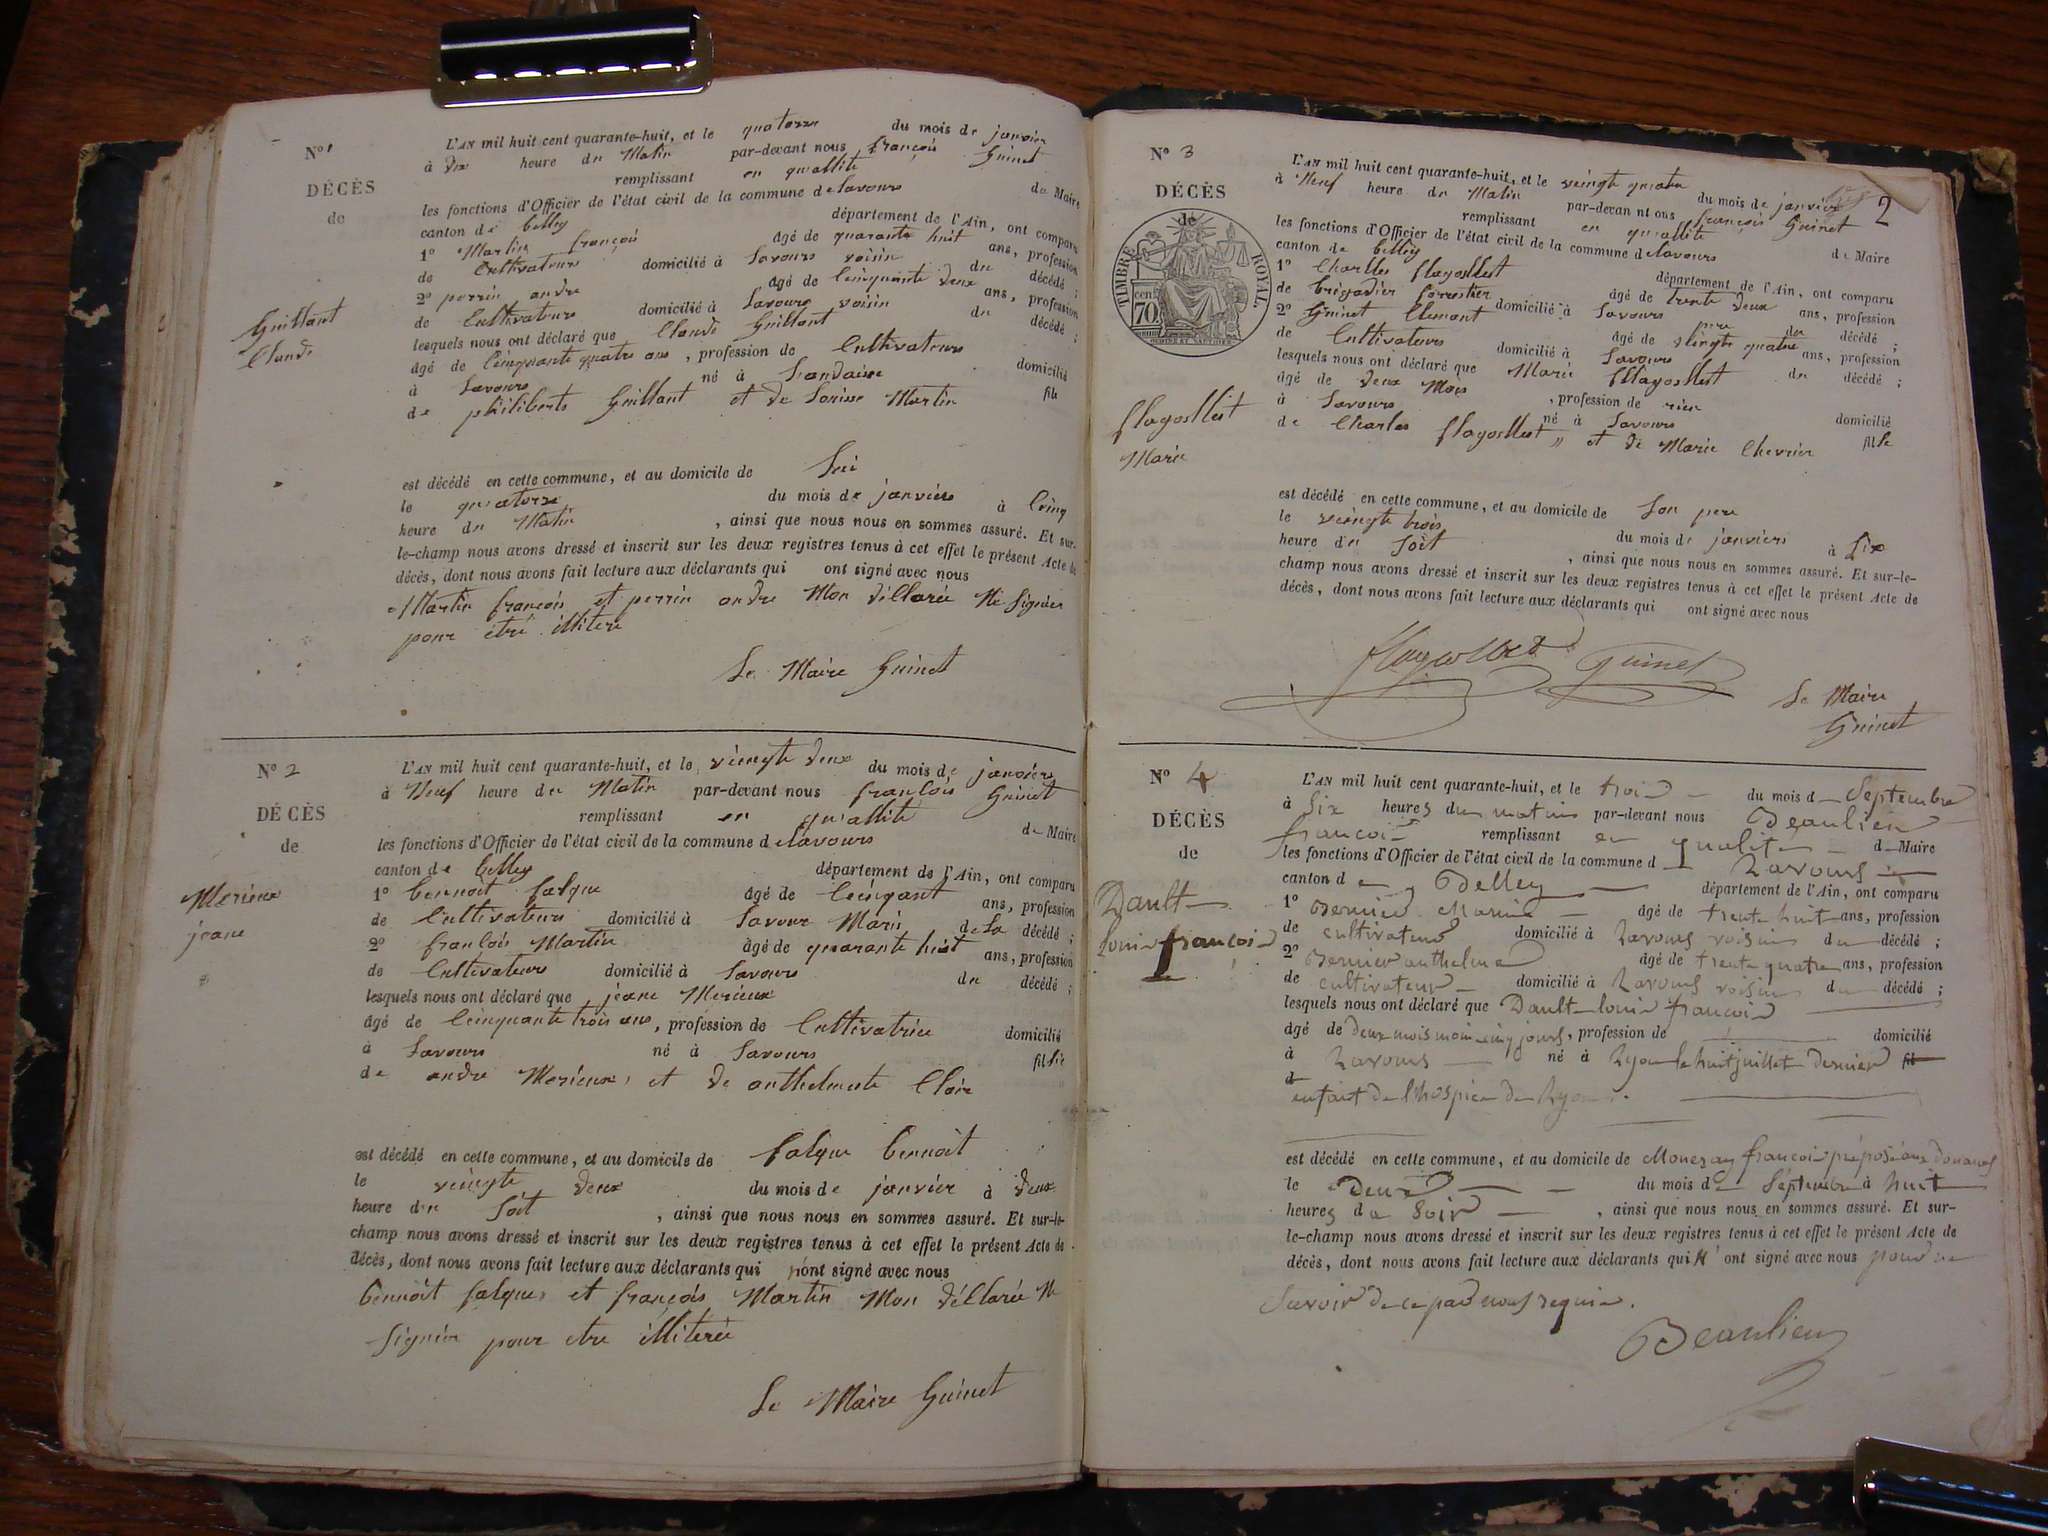 No 1
DÉCÈS
de
Guillant
Claude
L'AN mil huit cent quarante-huit, et le quatorze du mois de janvier
à Dix heure du Matin par-devant nous françois Guinet
remplissant en quallité de Maire
les fonctions d'Officier de l'état civil de la commune de Lavours
canton de belley département de l'Ain, ont comparu
1º Martin françois âgé de quarante huit ans, profession
de Cultivateur domicilié à Lavours voisin du décédé ;
2º perrin andre âgé de Cinquante deux ans, profession
de Cultivateur domicilié à Lavours voisin du décédé ;
lesquels nous ont déclaré que Claude Guillant
âgé de Cinquante quatre ans, profession de Cultivateur domicilié
à Lavours né à fils
de philiberts Guillant et de Martin
est décédé en cette commune, et au domicile de Lui
le quatorze du mois de janvier à Cinq
heure du Matin, ainsi que nous nous en sommes assuré. Et sur-
le-champ nous avons dressé et inscrit sur les deux registres tenus à cet effet le présent Acte de
décès, dont nous avons fait lecture aux déclarants qui ont signé avec nous
Martin françois et perrin andre Mon déllarée Né Signier
pour étre illitere
Le Maire Guinet
No 2
DÉCÈS
de
Merieux
jeane
L'AN mil huit cent quarante-huit, et le veingte deux du mois de janvier
à Neuf heure du Matin par-devant nous françois Guinet
remplissant en quallité de Maire
les fonctions d'Officier de l'état civil de la commune de Lavours
canton de belley département de l'Ain, ont comparu
1º bennoit falque âgé de ans, profession
de Cultivateur domicilié à Lavour Maris de La décédé ;
2º françois Martin âgé de quarante huit ans, profession
de Cultivateur domicilié à Lavours du décédé ;
lesquels nous ont déclaré que jeane Merieux
âgé de Cinquante trois ans, profession de Cultivatrice domicilié
à Lavours né à Lavours
de andre Merieux et de Claire
est décédé en cette commune, et au domicile de falque bennoit
le veingte deux du mois de janvier à deux
heure du Soit, ainsi que nous nous en sommes assuré. Et sur-le-
champ nous avons dressé et inscrit sur les deux registres tenus à cet effet le présent Acte de
décès, dont nous avons fait lecture aux déclarants qui n'ont signé avec nous
bennoit falque et françois Martin Mon déllarée N
Signier pour etre illiterée
Le Maire Guinet
2
No 3
DÉCÈS
de
TIMBRE ROYAL.
70 cent
flagollest
Marie
L'AN mil huit cent quarante-huit, et le veingte quatre du mois de janvier
à Neuf heure du Matin par-devan nt ous françois Guinet
remplissant en quallité de Maire
les fonctions d'Officier de l'état civil de la commune de Lavours
canton de belley département de l'Ain, ont comparu
1º Charlles flagollest âgé de trente deux ans, profession
de brigadier forrestier domicilié à Lavours pere du décédé ;
2º Guinet Clemont âgé de Veingte quatre ans, profession
de Cultivateur domicilié à Lavours du décédé ;
lesquels nous ont déclaré que Marie fllagollest
âgé de deux Mois, profession de rien domicilié
à Lavours né à Lavours fille
de Charles flagollest et de Marie Chevrier
est décédé en cette commune, et au domicile de Son pere
le veingte trois du mois de janvier à Six
heure du Soit, ainsi que nous nous en sommes assuré. Et sur-le-
champ nous avons dressé et inscrit sur les deux registres tenus à cet effet le présent Acte de
décès, dont nous avons fait lecture aux déclarants qui ont signé avec nous
flagollest Guinet
Le Maire
Guinet
No 4
DÉCÈS
de
Dault
louis françois
L'AN mil huit cent quarante-huit, et le trois du mois de Septembre
à Six heures du matin par-devant nous Beaulieu
françois remplissant en qualité de Maire
les fonctions d'Officier de l'état civil de la commune de Lavours
canton de Belley département de l'Ain, ont comparu
1º Bernier âgé de trente huit ans, profession
de cultivateur domicilié à Lavours voisin du décédé ;
2º Bernier anthelme âgé de trente quatre ans, profession
de cultivateur domicilié à Lavours voisin du décédé ;
lesquels nous ont déclaré que Dault louis françois
âgé de deux mois moins cinq jours, profession de domicilié
à Lavours né à Lyon le huit juillet dernier fil
de
enfant de l'hospice de Lyon.
est décédé en cette commune, et au domicile de françois préposé aux douanes
le Deux du mois de Septembre à huit
heures du Soir, ainsi que nous nous en sommes assuré. Et sur-
le-champ nous avons dressé et inscrit sur les deux registres tenus à cet effet le présent Acte de
décès, dont nous avons fait lecture aux déclarants qui n'ont signé avec nous pour ne
Savoir de ce par nous requis.
Beaulieu